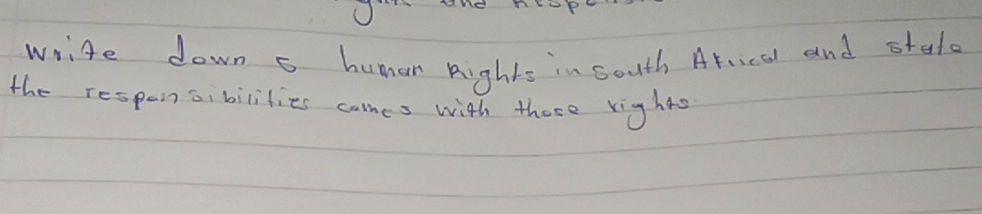 and
Write down 5 human Rights in South Africa and state
the responsibilities comes with those rights.